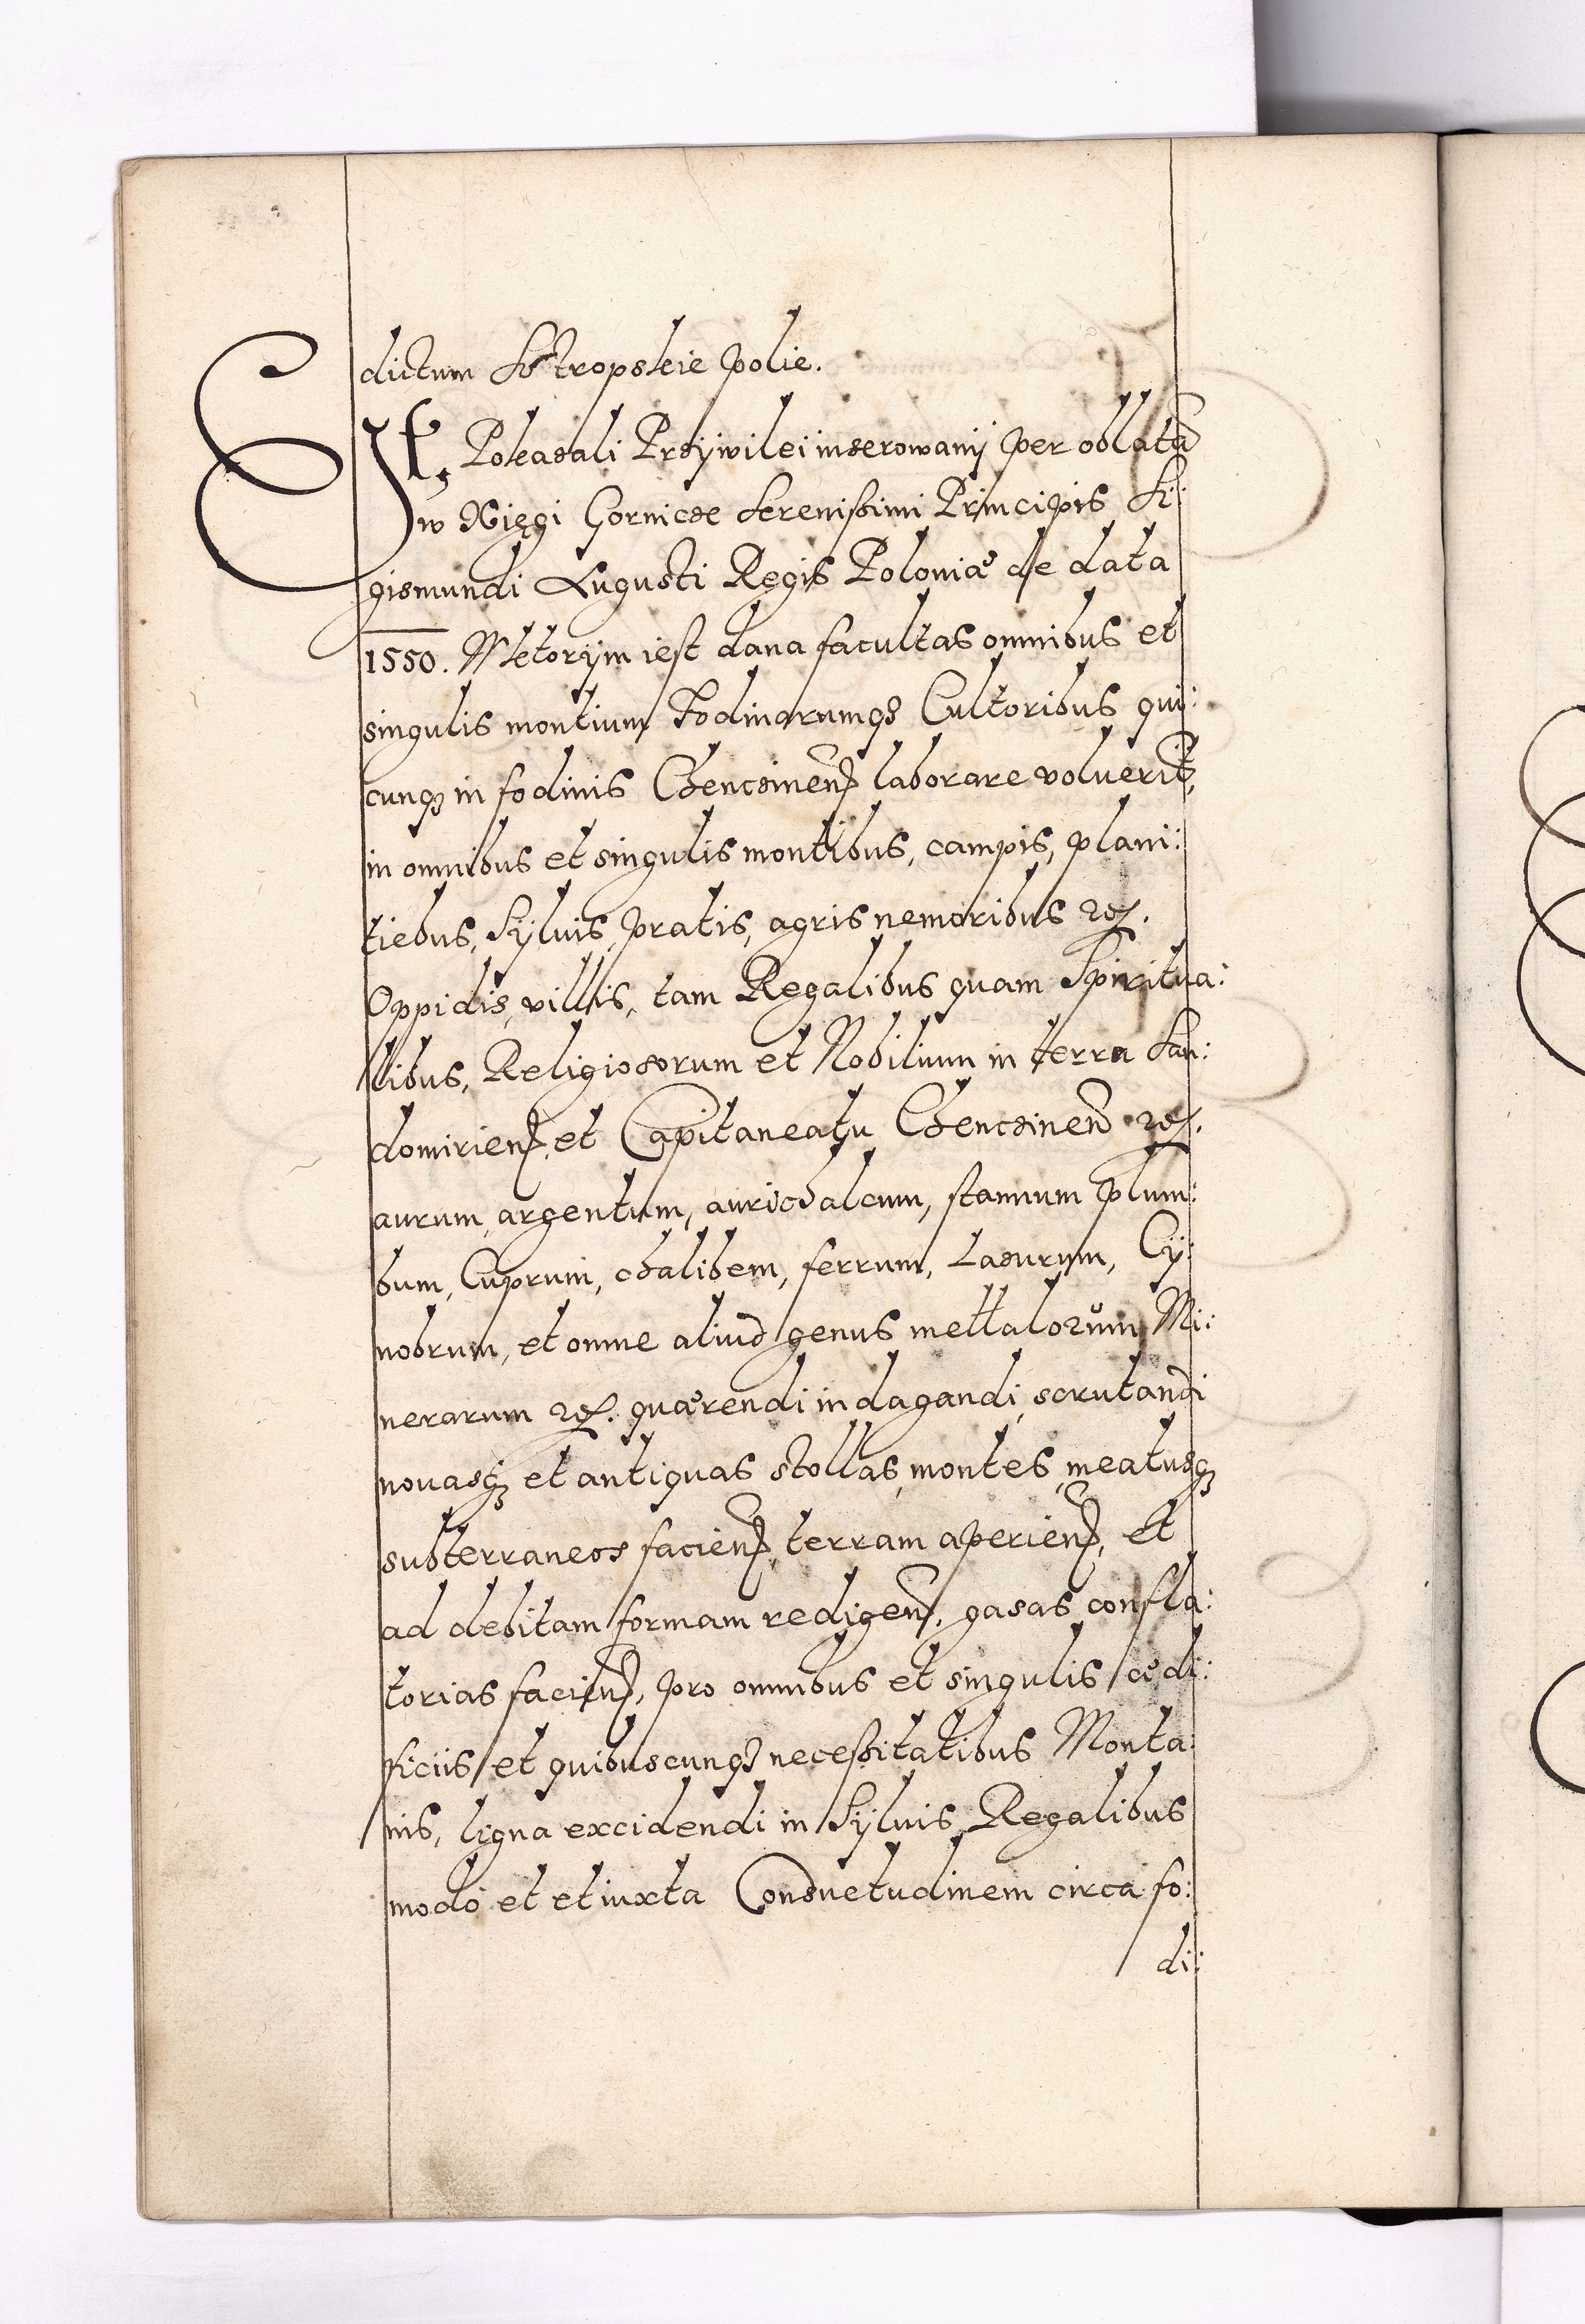 dictum Sstropskie Polie.
It, Pokazali Przywilei inserowany per oblatã
w Xięgi Gornicze Serenißimi Principis Si:
gismundi Augusti Regis Poloniæ de data
1550. Ktorym iest dana facultas omnibus et
singulis montium Fodinarumq3 Cultoribus qui:
cunq3 in fodinis Chencinen̄ laborare voluerīt,
in omnibus et singulis montibus, campis, plani:
tiebus, Sylvis, pratis, agris nemoribus etc.
Oppidis, villis, tam Regalibus quam Spiritua:
libus, Religiosorum et Nobilium in terra San:
domirien̄, et Capitaneatu Chencinen̄ etc.
aurum, argentum, aurichalcum, stannum plum:
bum, Cuprum, chalibem, ferrum, Lazurum, Cy:
nobrum, et omne aliud genus mettalorum Mi:
nerarum etc. quærendi indagandi, scrutandi
novasq3 et antiquas stollas, montes, meatusq3
subterraneos facien̄, terram aperien̄, et
ad debitam formam redigen̄, gasas confla:
torias facien̄, pro omnibus et singulis ædi:
ficiis et quibuscunq3 neceßitatibus Monta:
nis, ligna excidendi in Sylvis Regalibus
modo et et iuxta Consuetudinem circa fo:
di: